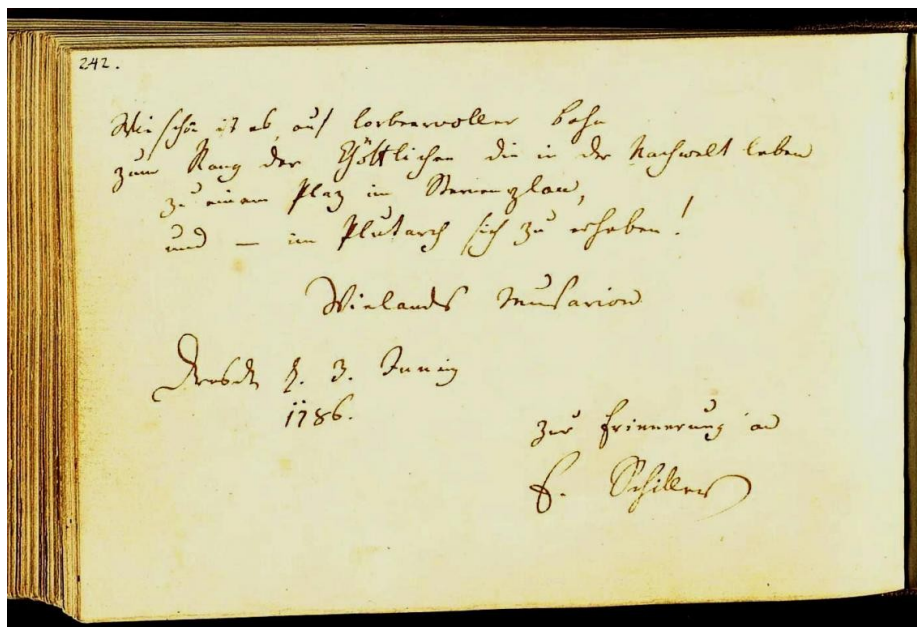 242.
Wie schön ist es, auf lorbeervoller Bahn
zum Rang der Göttlichen die in der Nachwelt leben
zu einem Plaz im Sternenplan,
und — im Plutarch sich zu erheben!
Wielands Musarion
Dresden d. 3.
1786.
zur Erinnerung an
F. Schiller